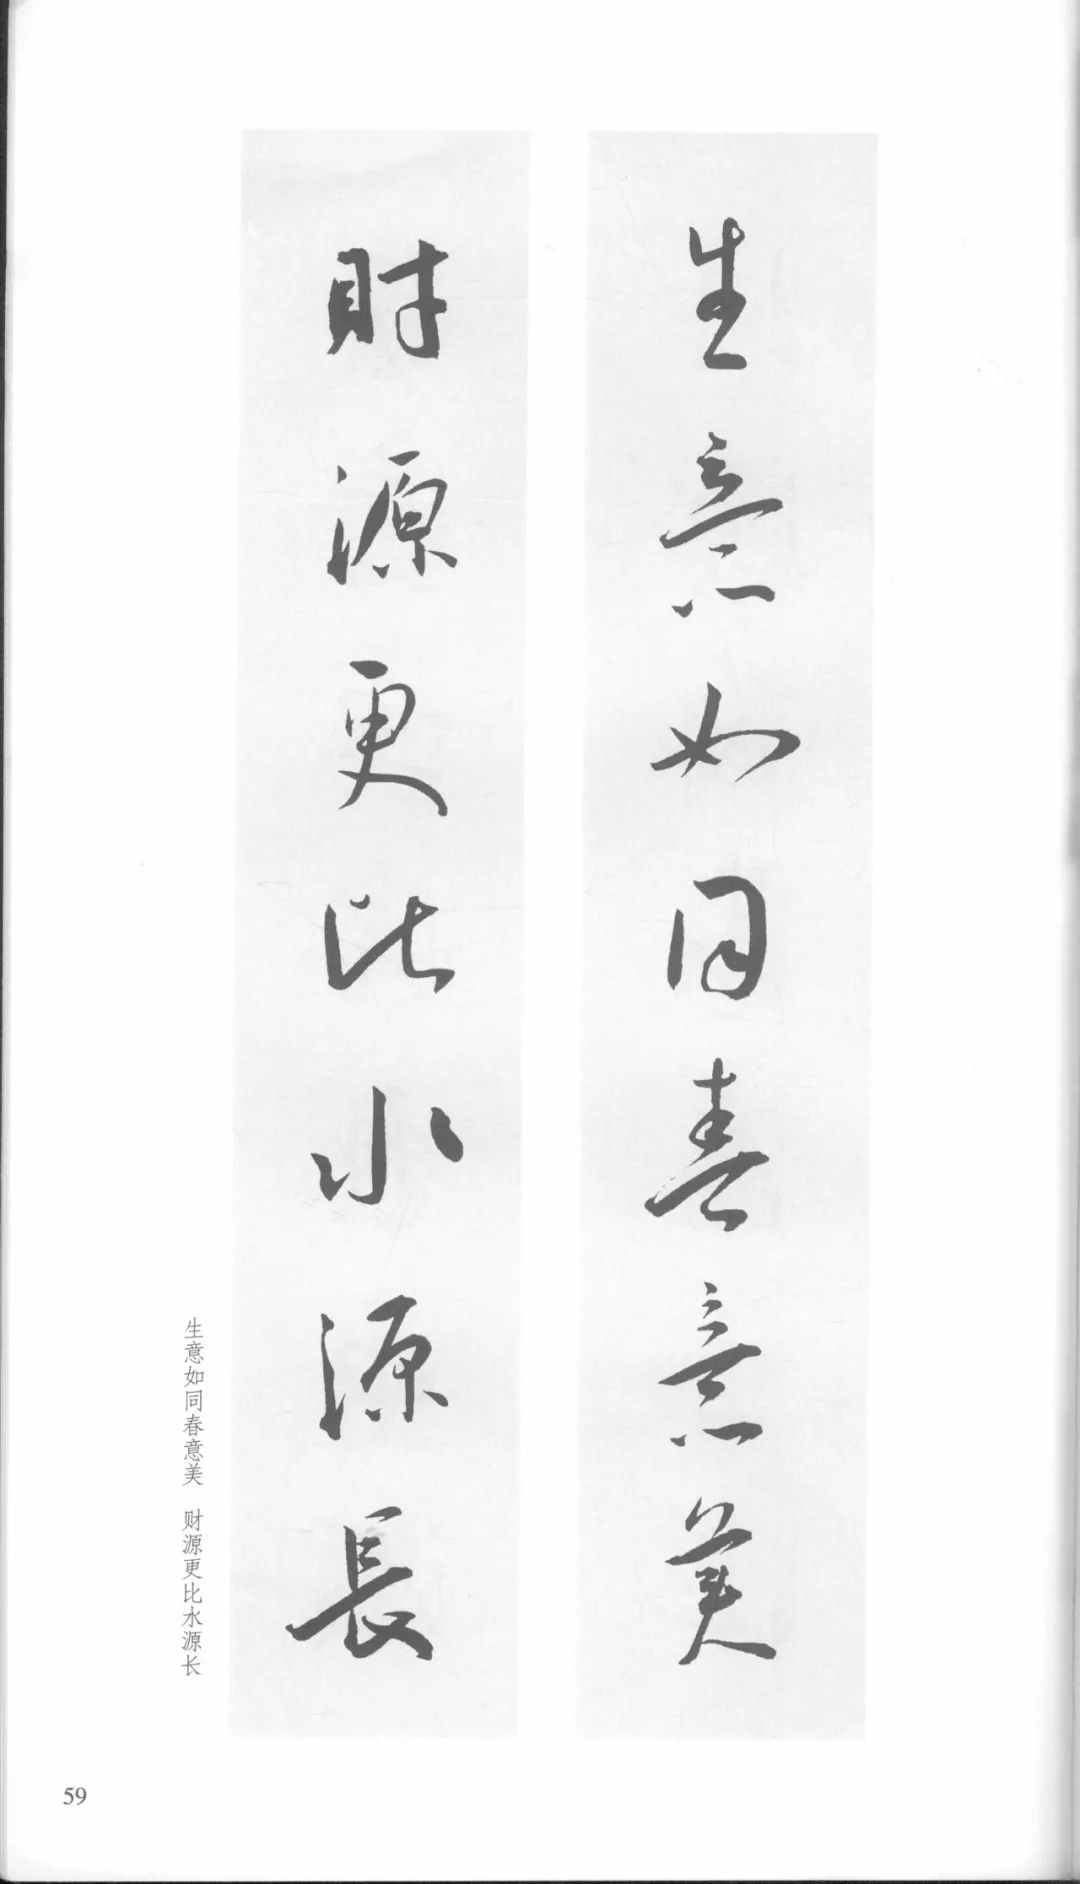 生意如同春意美
財源更比水源長
生意如同春意美 财源更比水源长
59